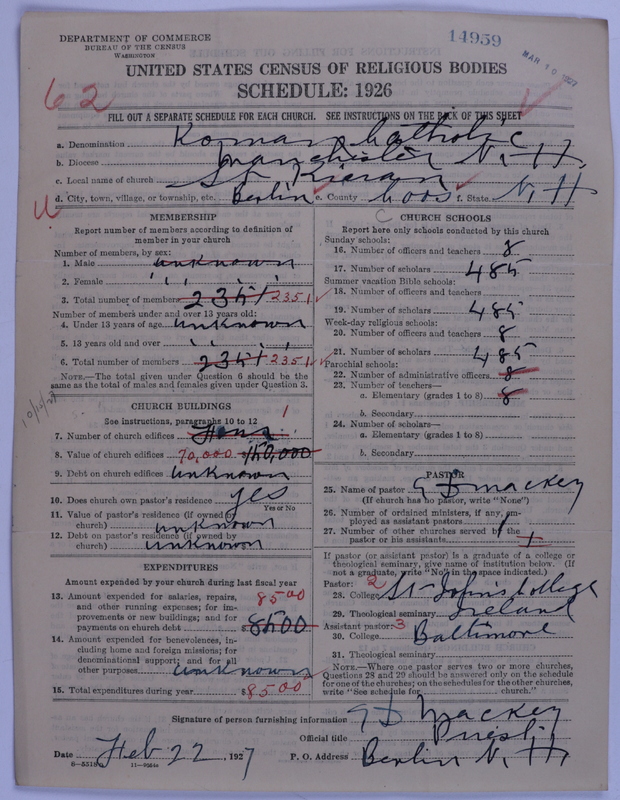 DEPARTMENT OF COMMERCE
BUREAU OF THE CENSUS
WASHINGTON
14959
MAR 10 1927
UNITED STATES CENSUS OF RELIGIOUS BODIES
SCHEDULE: 1926
62
FILL OUT A SEPARATE SCHEDULE FOR EACH CHURCH. SEE INSTRUCTIONS ON THE BACK OF THIS SHEET
a. Denomination Roman Catholic
b. Diocese Manchester N. H.
c. Local name of church St Kieran
d. City, town, village, or township, etc. Berlin e. County Coos f. State N. H
MEMBERSHIP
Report number of members according to definition of
member in your church
Number of members, by sex:
1. Male unknown
2. Female " "
3. Total number of members 2351 2351
Number of members under and over 13 years old:
4. Under 13 years of age unknown
5. 13 years old and over
6. Total number of members 2351 2351
NOTE.—The total given under Question 6 should be the
same as the total of males and females given under Question 3.
10/10/27
CHURCH BUILDINGS
See instructions, paragraphs 10 to 12
7. Number of church edifices 1
8. Value of church edifices 70,000 150,000
9. Debt on church edifices unknown
10. Does church own pastor's residence yes
Yes or No
11. Value of pastor's residence (if owned by
church) unknown
12. Debt on pastor's residence (if owned by
church) unknown
EXPENDITURES
Amount expended by your church during last fiscal year
13. Amount expended for salaries, repairs,
and other running expenses; for im-
provements or new buildings; and for
payments on church debt 8500 8500
14. Amount expended for benevolences, in-
cluding home and foreign missions; for
denominational support; and for all
other purposes unknown
15. Total expenditures during year $8500
CHURCH SCHOOLS
Report here only schools conducted by this church
Sunday schools:
16. Number of officers and teachers 8
17. Number of scholars 485
Summer vacation Bible schools:
18. Number of officers and teachers
19. Number of scholars 485
Week-day religious schools:
20. Number of officers and teachers 8
21. Number of scholars 485
Parochial schools:
22. Number of administrative officers 8
23. Number of teachers—
a. Elementary (grades 1 to 8) 8
b. Secondary
24. Number of scholars—
a. Elementary (grades 1 to 8)
b. Secondary
PASTOR
25. Name of pastor Mackey
(If church has no pastor, write "None")
26. Number of ordained ministers, if any, em-
ployed as assistant pastors 1
27. Number of other churches served by the
pastor or his assistants
If pastor (or assistant pastor) is a graduate of a college or
theological seminary, give name of institution below. (If
not a graduate, write "No" in the space indicated.)
Pastor: 2
28. College St John's College
29. Theological seminary Ireland
Assistant pastor: 3
30. College Baltimore
31. Theological seminary
NOTE.—Where one pastor serves two or more churches,
Questions 28 and 29 should be answered only on the schedule
for one of the churches; on the schedules for the other churches,
write "See schedule for church."
Signature of person furnishing information Mackey
Official title Priest
Date Feb 22, 1927 P. O. Address Berlin N. H.